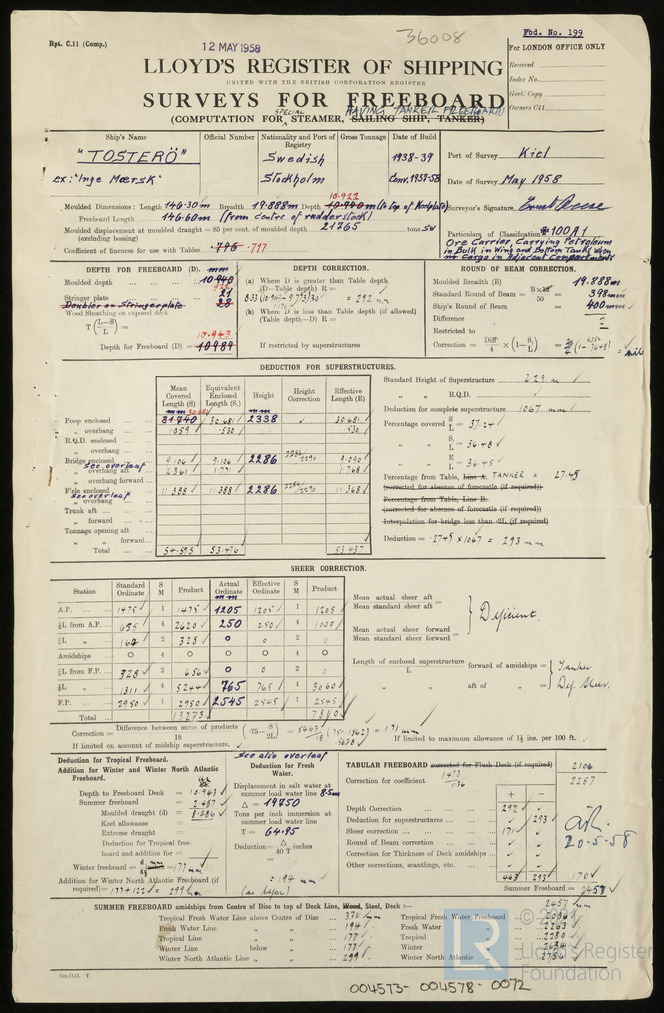 Rpt. C.11 (Comp.)
12 MAY 1958
36008
Fbd. No. 199
For LONDON OFFICE ONLY
Received
Index No.
Govt. Copy
Owners
LLOYD'S REGISTER OF SHIPPING
UNITED WITH THE BRITISH CORPORATION REGISTER
SURVEYS FOR FREEBOARD
SPECIAL HAVING TANKER FREEBOARD
(COMPUTATION FOR STEAMER, SAILING SHIP, TANKER)
Ship's Name
Official Number
Nationality and Port of Registry
Gross Tonnage
Date of Build
"TOSTERÖ"
ex: "Inge Mærsk"
Swedish
Stockholm
1938-39
Conv. 1957-58
Port of Survey Kiel
Date of Survey May 1958
Surveyor's Signature
Particulars of Classification 100A1
Ore Carrier, Carrying Petroleum
in Bulk in Wing and Bottom Tanks when
no Cargo in Adjacent Compartments
Moulded Dimensions: Length 146·30m Breadth 19·888m Depth 10·940m (to top of Keelplate)
10·922
Freeboard Length 146·60m (from centre of rudderstock)
Moulded displacement at moulded draught = 85 per cent. of moulded depth 21765 tons SW
(excluding bossing)
Coefficient of fineness for use with Tables ·795 ·797
DEPTH FOR FREEBOARD (D). mm
Moulded depth 10940
Stringer plate 21
Doubler on Stringerplate 28
Wood Sheathing on exposed deck
T (L−S / L) =
10·943
Depth for Freeboard (D) = 10989
DEPTH CORRECTION.
(a) Where D is greater than Table depth
(D−Table depth) R =
8·33 (10·943 - 9·773) 30 = 292 mm
(b) Where D is less than Table depth (if allowed)
(Table depth−D) R =
If restricted by superstructures
ROUND OF BEAM CORRECTION.
Moulded Breadth (B) 19.888m
Standard Round of Beam = B×12 / 50 = 398mm
Ship's Round of Beam = 400mm
Difference 2
Restricted to
Correction = Diff / 4 × (1 − S₁ / L) = nil
DEDUCTION FOR SUPERSTRUCTURES.
Mean Covered Length (S)
Equivalent Enclosed Length (S₁)
Height
Height Correction
Effective Length (E)
Poop enclosed 31740 30·681 2338 30·681
„ overhang 1·059 ·530 ·530
R.Q.D. enclosed
„ overhang
Bridge enclosed 9·106 9·106 2286 2286/2290 9·090
See overleaf
„ overhang aft 2·361 1·771 1·768
„ overhang forward
F'cle enclosed 11·388 11·388 2286 2286/2290 11·368
See overleaf
„ overhang
Trunk aft
„ forward
Tonnage opening aft
„ „ forward
Total 54·595 53·476 53·437
Standard Height of Superstructure 2·29 m
„ „ R.Q.D.
Deduction for complete superstructure 1067 mm
Percentage covered S / L = 37·24
„ „ S₁ / L = 36·48
„ „ E / L = 36·45
Percentage from Table, Line A. TANKER = 27·45
(corrected for absence of forecastle (if required))
Percentage from Table, Line B.
(corrected for absence of forecastle (if required))
Interpolation for bridge less than ·2L (if required)
Deduction = ·2745 × 1067 = 293 mm
SHEER CORRECTION.
Station
Standard Ordinate
S M
Product
Actual Ordinate mm
Effective Ordinate
S M
Product
A.P. 1475 1 1475 1205 1205 1 1205
⅙L from A.P. 655 4 2620 250 250 4 1000
⅓L „ 164 2 328 0 0 2 0
Amidships 0 4 0 0 0 4 0
⅓L from F.P. 328 2 656 0 0 2 0
⅙L „ 1311 4 5244 765 765 4 3060
F.P. 2950 1 2950 2545 2545 1 2545
Total 13273 7810
Mean actual sheer aft
Mean standard sheer aft =
Mean actual sheer forward
Mean standard sheer forward =
Deficient.
Length of enclosed superstructure / L forward of amidships =
„ „ aft of „ =
Tanker
Def. Sheer.
Correction = Difference between sums of products / 18 (·75 − S / 2L) = 5463 / 18 (·75-·1862) = 171 mm
If limited on account of midship superstructure.
If limited to maximum allowance of 1½ ins. per 100 ft.
Deduction for Tropical Freeboard.
Addition for Winter and Winter North Atlantic Freeboard.
Depth to Freeboard Deck = 10·943
Summer freeboard = 2·457
Moulded draught (d) = 8·486
Keel allowance
Extreme draught =
Deduction for Tropical freeboard and addition for =
Winter freeboard = = 177 mm
Addition for Winter North Atlantic Freeboard (if required) = 177 + 122 = 299 mm
See also overleaf
Deduction for Fresh Water.
Displacement in salt water at summer load water line 8·5m
Δ = 19750
Tons per inch immersion at summer load water line
T = 64·95
Deduction = Δ / 40 T inches
= 194 mm
(as before)
TABULAR FREEBOARD corrected for Flush Deck (if required) 2106
Correction for coefficient 1·477 / 1·36 2287
+ −
Depth Correction 292
Deduction for superstructures 293
Sheer correction 171
Round of Beam correction
Correction for Thickness of Deck amidships
Other corrections, scantlings, etc.
463 293 170
20-5-58
Summer Freeboard = 2457
SUMMER FREEBOARD amidships from Centre of Disc to top of Deck Line, Wood, Steel, Deck :— 2457 mm
Tropical Fresh Water Line above Centre of Disc 371 mm
Fresh Water Line „ „ 194
Tropical Line „ „ 177
Winter Line below „ 177
Winter North Atlantic Line „ „ 299
Tropical Fresh Water Freeboard 2086
Fresh Water „ 2263
Tropical „ 2280
Winter „ 2634
Winter North Atlantic „ 2756
LR
Lloyd's Register
Foundation
004573- 004578- 0072